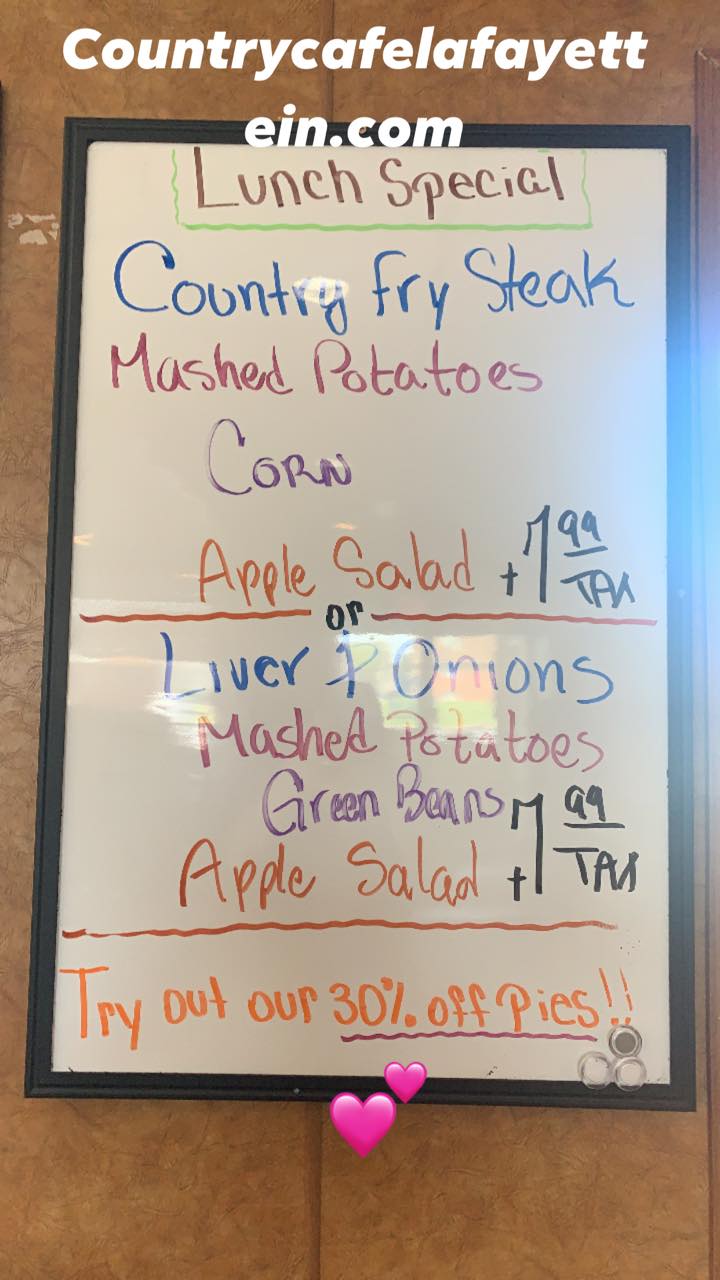 Countrycafelafayett
ein.com
Lunch Special
Country Fry Steak
Mashed Potatoes
Corn
Apple Salad + 7 99 TAX
or
Liver & Onions
Mashed Potatoes
Green Beans
Apple Salad + 7 99 TAX
Try out our 30% off Pies!!